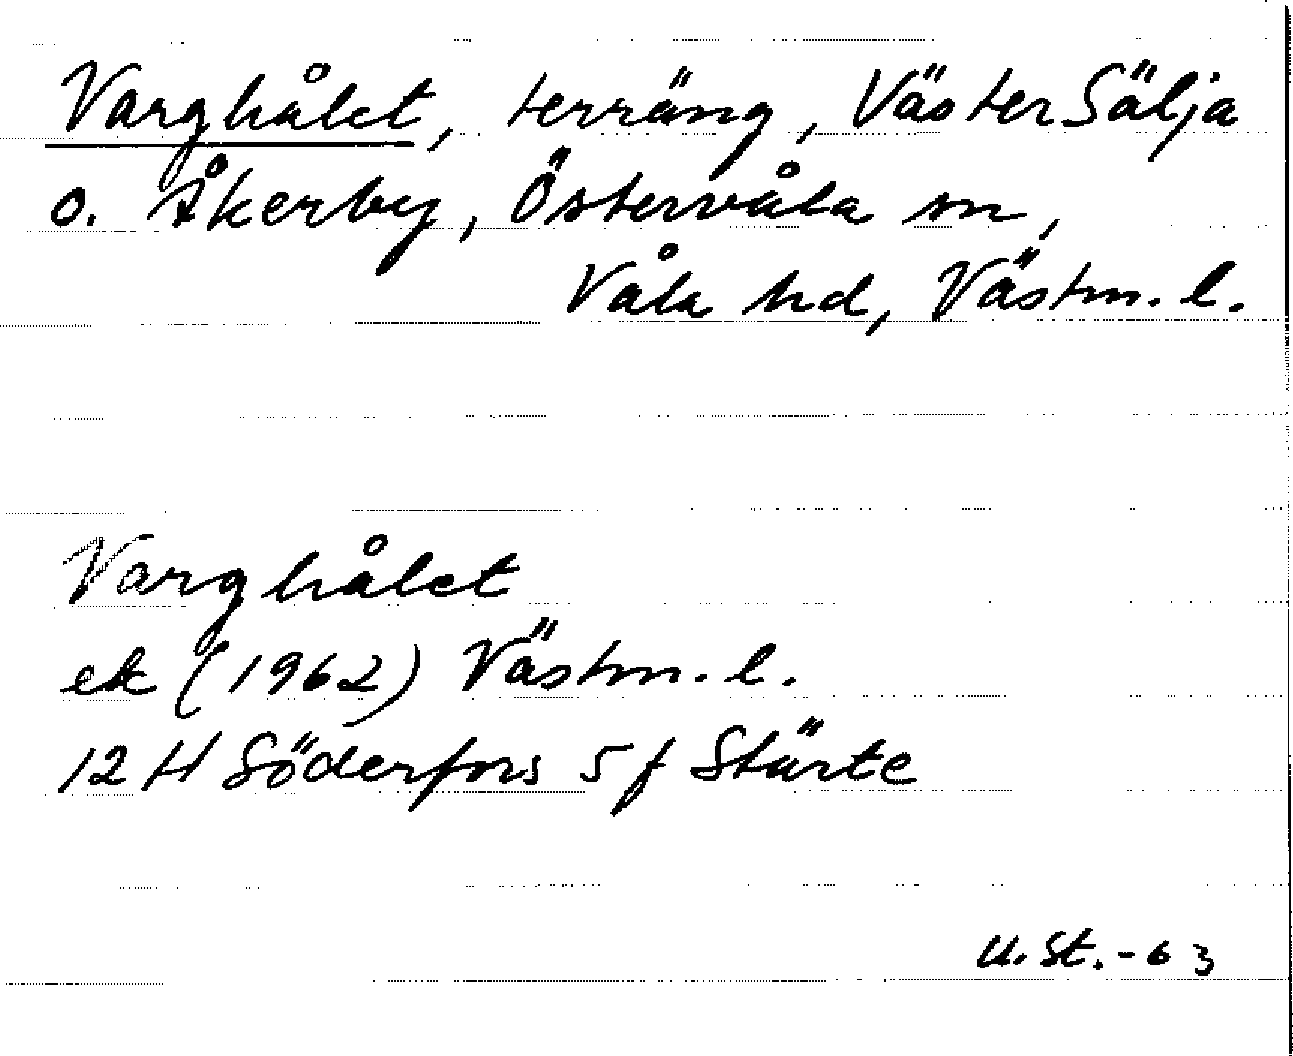 Varghålet, terräng, Väster Sälja
o. Åkerby, Östervåla sn,
Våla hd, Västm. l.
Varghålet
ek (1962) Västm. l.
12 H Söderfors 5 f Stärte
U. St. -63